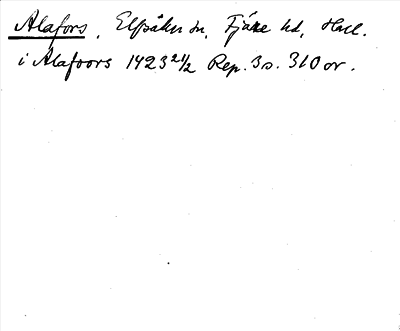 Alafors, Elfsåkers sn, Fjäre hd, Hall.
i Alafoors 1423 21/2 Rep. 3 s. 310 or.